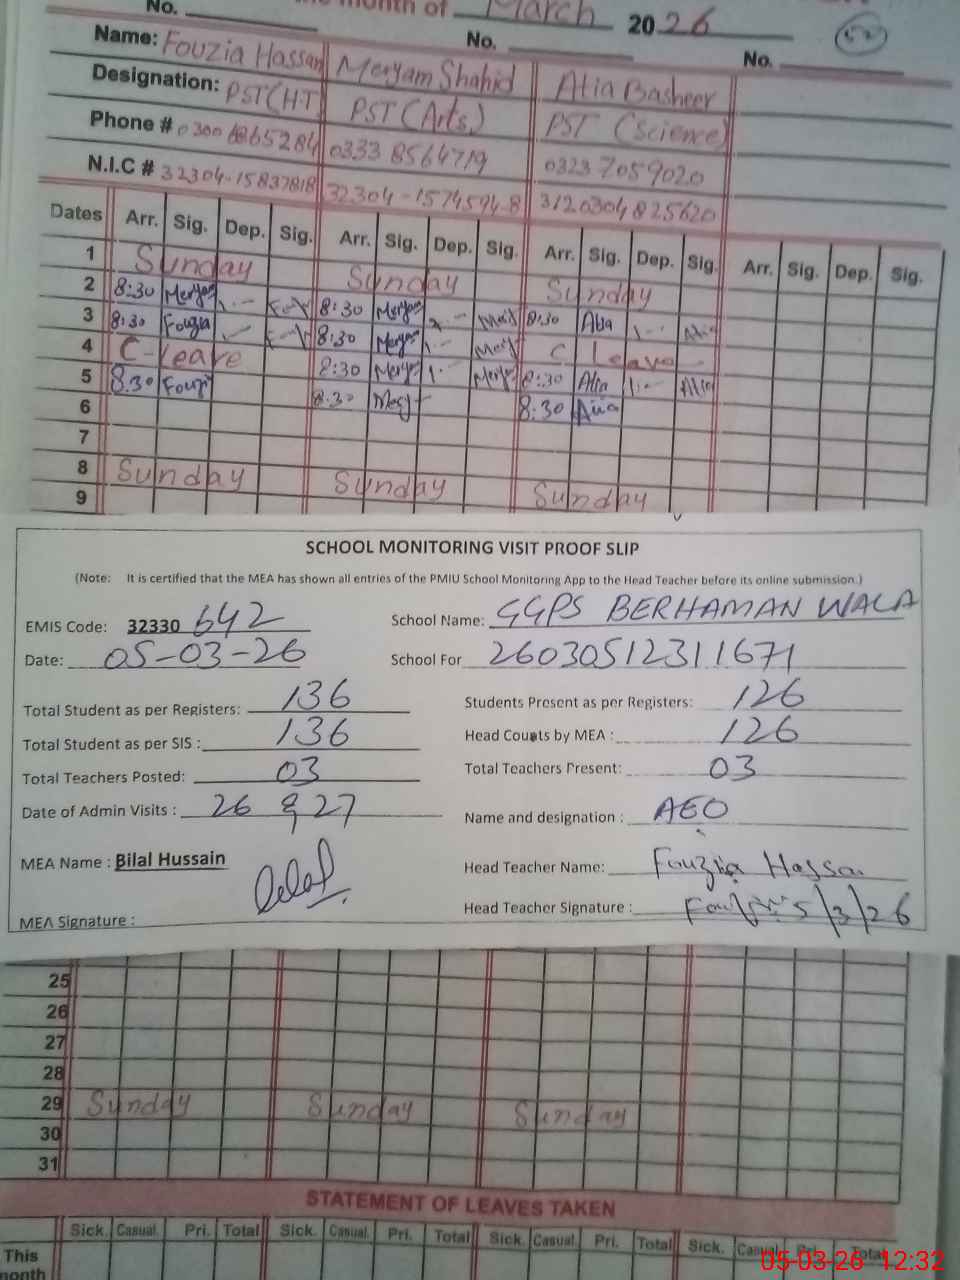 No.
month of March 2026
No.
No.
Name: Fouzia Hassan Meryam Shahid Atia Basheer
Designation: PST(H.T PST (Arts) PST (Science)
Phone # 0333 8564719 0323 7059020
N.I.C # 32304-15837818 32304-15745948 3120304825620
Dates Arr. Sig. Dep. Sig. Arr. Sig. Dep. Sig. Arr. Sig. Dep. Sig. Arr. Sig. Dep. Sig.
1 Sunday Sunday Sunday
2 8:30 Meryam 1.-- 8:30 Meryam 8:30 Atia 1.-- Atia
3 8:30 Fouzia 1.-- 8:30 Meryam 1.-- C Leave
4 C-leave 8:30 Meryam 1.-- 8:30 Atia 1.-- Atia
5 8.30 Fouzi 8.30 8:30 Atia
6
7
8 Sunday Sunday Sunday
9
SCHOOL MONITORING VISIT PROOF SLIP
(Note: It is certified that the MEA has shown all entries of the PMIU School Monitoring App to the Head Teacher before its online submission.)
EMIS Code: 32330 642 School Name: GGPS BERHAMAN WALA
Date: 05-03-26 School For 26030512311671
Total Student as per Registers: 136 Students Present as per Registers: 126
Total Student as per SIS : 136 Head Counts by MEA : 126
Total Teachers Posted: 03 Total Teachers Present: 03
Date of Admin Visits : 26 & 27 Name and designation : AEO
MEA Name : Bilal Hussain Head Teacher Name: Fouzia Hassa
MEA Signature : Head Teacher Signature : 5/3/26
25
26
27
28
29 Sunday Sunday Sunday
30
31
STATEMENT OF LEAVES TAKEN
Sick. Casual. Pri. Total Sick. Casual. Pri. Total Sick. Casual. Pri. Total Sick. Casual Pri. Total
This
month
05-03-26 12:32